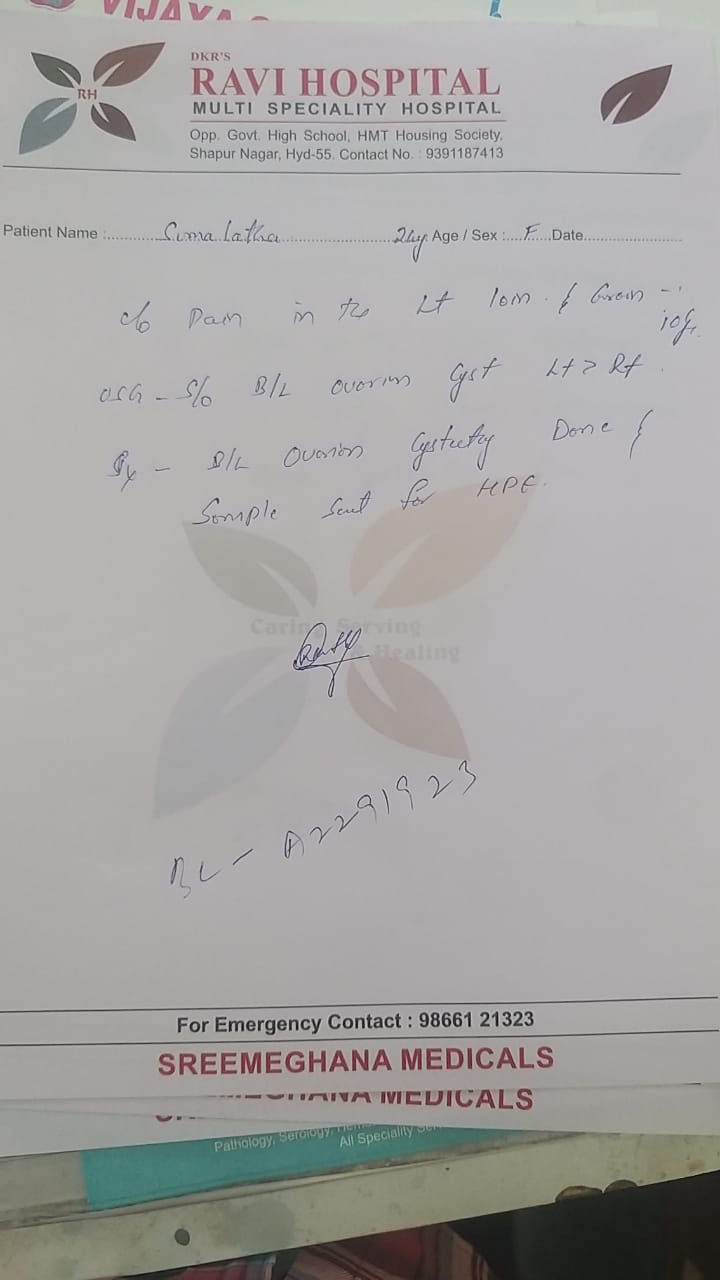 VIJAYA
DKR'S
RH
RAVI HOSPITAL
MULTI SPECIALITY HOSPITAL
Opp. Govt. High School, HMT Housing Society,
Shapur Nagar, Hyd-55. Contact No. : 9391187413
Patient Name : Suma latha 24y Age / Sex : F Date
c/o Pain in the Lt loin & Groin -
USG - S/o B/L ovarian Cyst Lt > Rt.
B/L Ovarian Cystectomy Done &
Sample sent for HPE.
Caring Serving
& Healing
BL - A2291923
For Emergency Contact : 98661 21323
SREEMEGHANA MEDICALS
MEDICALS
Pathology, Serology,
All Speciality